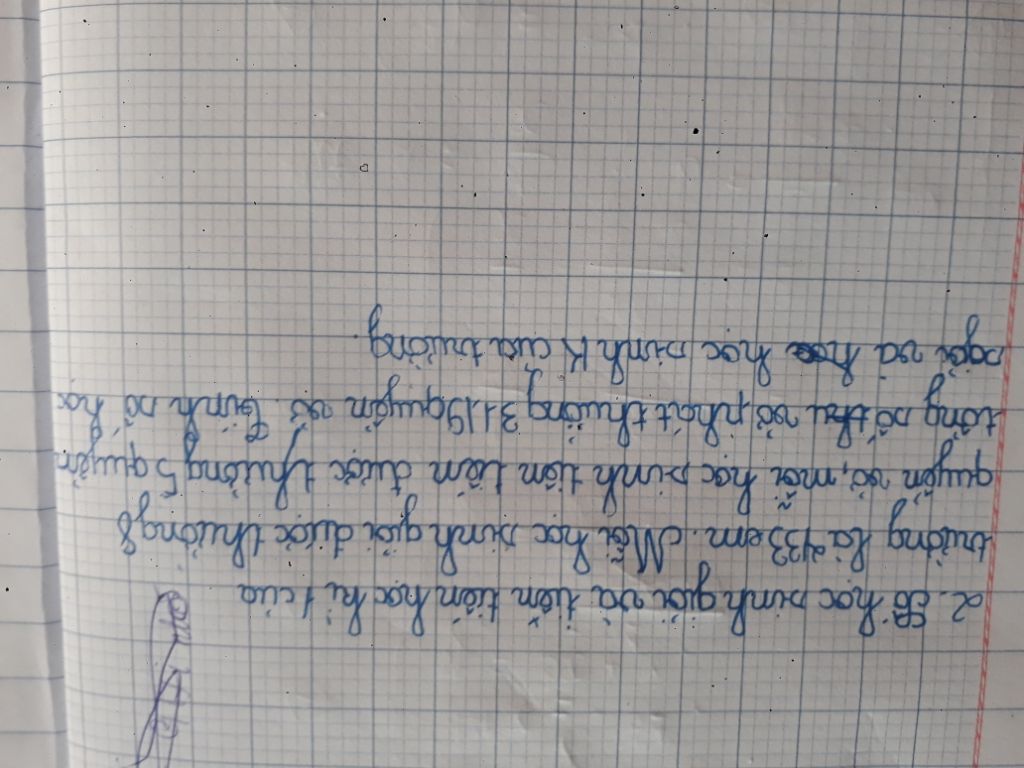 2. Số học sinh giỏi và tiên tiến học kì 1 của
trường là 433 em. Mỗi học sinh giỏi được thưởng 8
quyển vở, mỗi học sinh tiên tiến được thưởng 5 quyển
tổng số vở phát thưởng 3119 quyển vở. Tính số học
giỏi và học sinh K của trường.